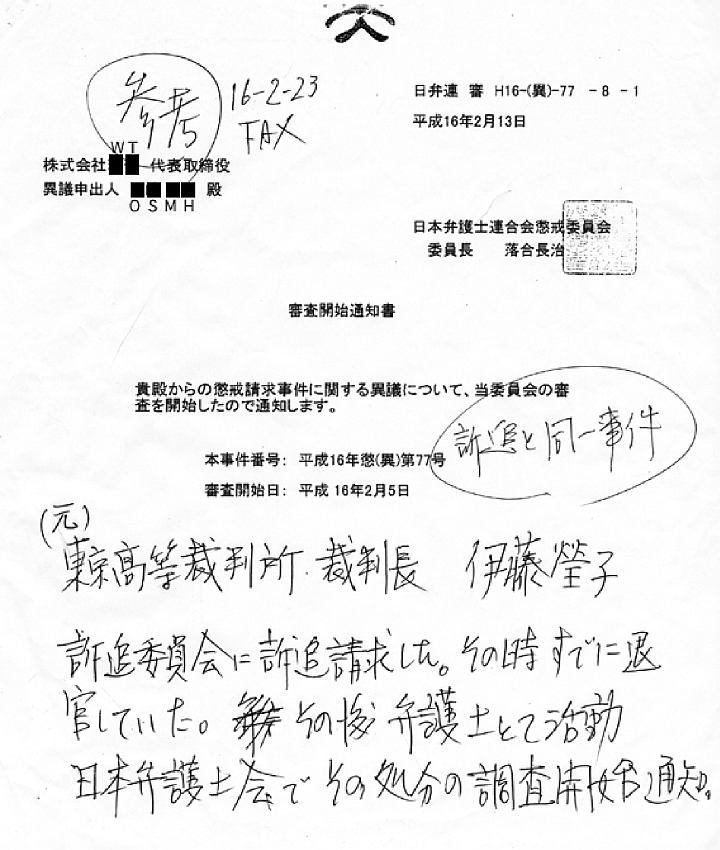 参考
16-2-23
FAX
日弁連 審 H16-(異)-77 -8-1
平成16年2月13日
WT
株式会社 代表取締役
異議申出人 殿
OSMH
日本弁護士連合会懲戒委員会
委員長 落合長治
審査開始通知書
貴殿からの懲戒請求事件に関する異議について、当委員会の審
査を開始したので通知します。
訴追と同一事件
本事件番号: 平成16年懲(異)第77号
審査開始日: 平成 16年2月5日
(元)
東京高等裁判所 裁判長 伊藤瑩子
訴追委員会に訴追請求した。その時すでに退
官していた。その後弁護士として活動
日本弁護士会でその処分の調査開始通知。